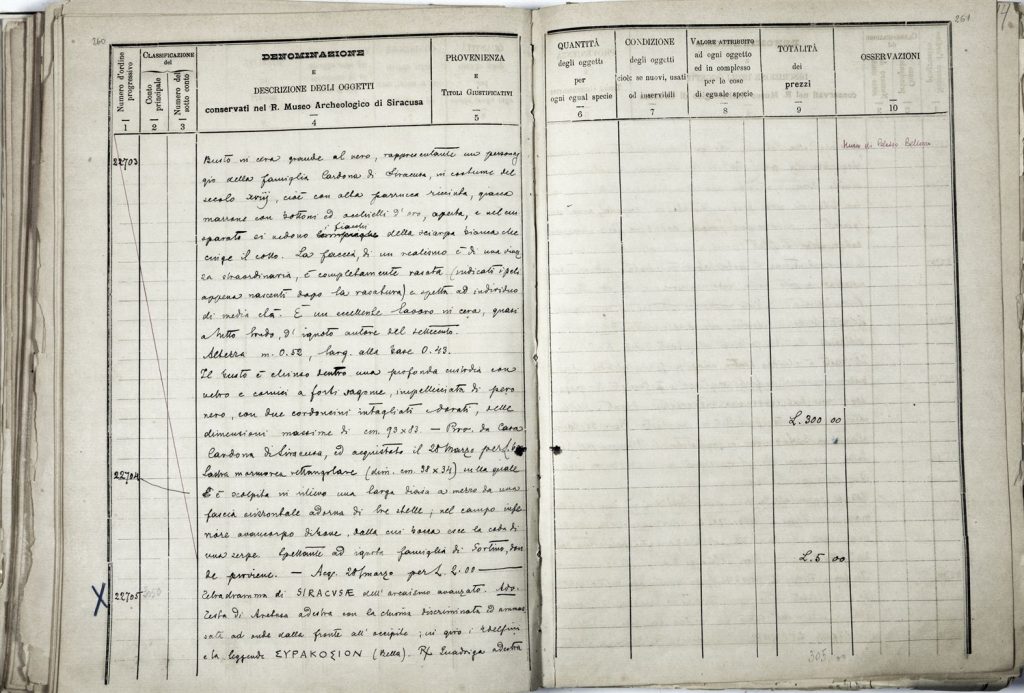 260
Numero d'ordine progressivo
CLASSIFICAZIONE
del
Conto principale
Numero del sotto conto
DENOMINAZIONE
E
DESCRIZIONE DEGLI OGGETTI
conservati nel R. Museo Archeologico di Siracusa
PROVENIENZA
E
TITOLI GIUSTIFICATIVI
1
2
3
4
5
22703
Busto in cera grande al vero, rappresentante un personag
gio della famiglia Cardona di Siracusa, in costume del
secolo xviij, cioè con alta parrucca ricciuta, giacca
marrone con bottoni ed occhielli d'oro, aperta, e nel cui
sparato si vedono i fiocchi della sciarpa bianca che
cinge il collo. La faccia, di un realismo e di una vivez
za straordinaria, è completamente rasata (indicati i peli
appena nascenti dopo la rasatura) e spetta ad individuo
di media età. È un eccellente lavoro in cera, quasi
a tutto tondo, d'ignoto autore del settecento.
Altezza m. 0.52, larg. alla base 0.43.
Il busto è chiuso dentro una profonda custodia con
vetro e cornici a forti sagome, impellicciata di pero
nero, con due cordoncini intagliati e dorati, delle
dimensioni massime di cm. 93 x 83. — Prov. da Casa
Cardona di Siracusa, ed acquistato il 28 Marzo per L.
22704
Lastra marmorea rettangolare (dim. cm. 38 x 34) sulla quale
è scolpita in rilievo una larga divisa a mezzo da una
fascia orizzontale adorna di tre stelle; nel campo infe
riore avancorpo di leone, dalla cui bocca esce la coda di
una serpe. Spettante ad ignota famiglia di Sortino, don
de proviene. — Acq. 28 marzo per L. 2.00
X
22705
Tetradramma di SIRACVSÆ dell'arcaismo avanzato. Adv.
Testa di Aretusa a destra con la chioma discriminata ed
ad onde dalla fronte all'occipite; in giro i 4 delfini
e la leggenda ΣΥΡΑΚΟΣΙΟΝ (Bella). R/. Quadriga a destra
261
QUANTITÀ
degli oggetti
per
ogni egual specie
CONDIZIONE
degli oggetti
cioè: se nuovi, usati
od inservibili
VALORE ATTRIBUITO
ad ogni oggetto
ed in complesso
per le cose
di eguale specie
TOTALITÀ
dei
prezzi
OSSERVAZIONI
6
7
8
9
10
Museo di Palazzo Bellomo
L. 300 00
L. 5 00
305